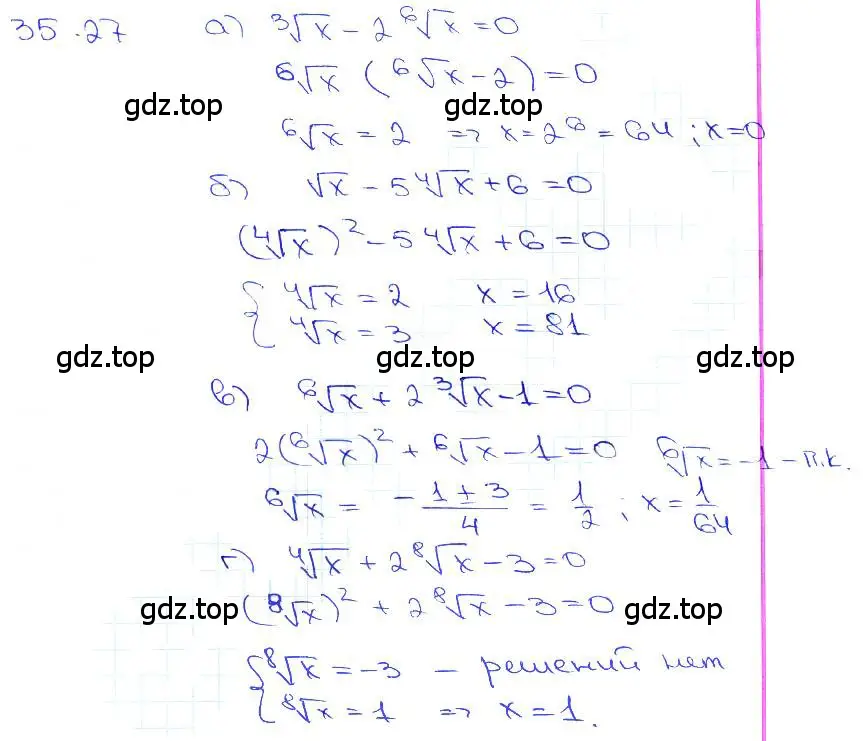 35.27 а) ³√x − 2 ⁶√x = 0
⁶√x (⁶√x − 2) = 0
gdz.top gdz.top
⁶√x = 2 => x = 2⁶ = 64; x = 0
б) √x − 5 ⁴√x + 6 = 0
(⁴√x)² − 5 ⁴√x + 6 = 0
{ ⁴√x = 2 x = 16
⁴√x = 3 x = 81
gdz.top gdz.top gdz.top
в) ⁶√x + 2 ³√x − 1 = 0
2(⁶√x)² + ⁶√x − 1 = 0 ⁶√x = −1 − п.к.
⁶√x = −(1 ± 3)/4 = 1/2; x = 1/64
г) ⁴√x + 2 ⁸√x − 3 = 0
gdz.top (⁸√x)² + 2 ⁸√x − 3 = 0 gdz.top
{ ⁸√x = −3 – решений нет
⁸√x = 1 => x = 1.